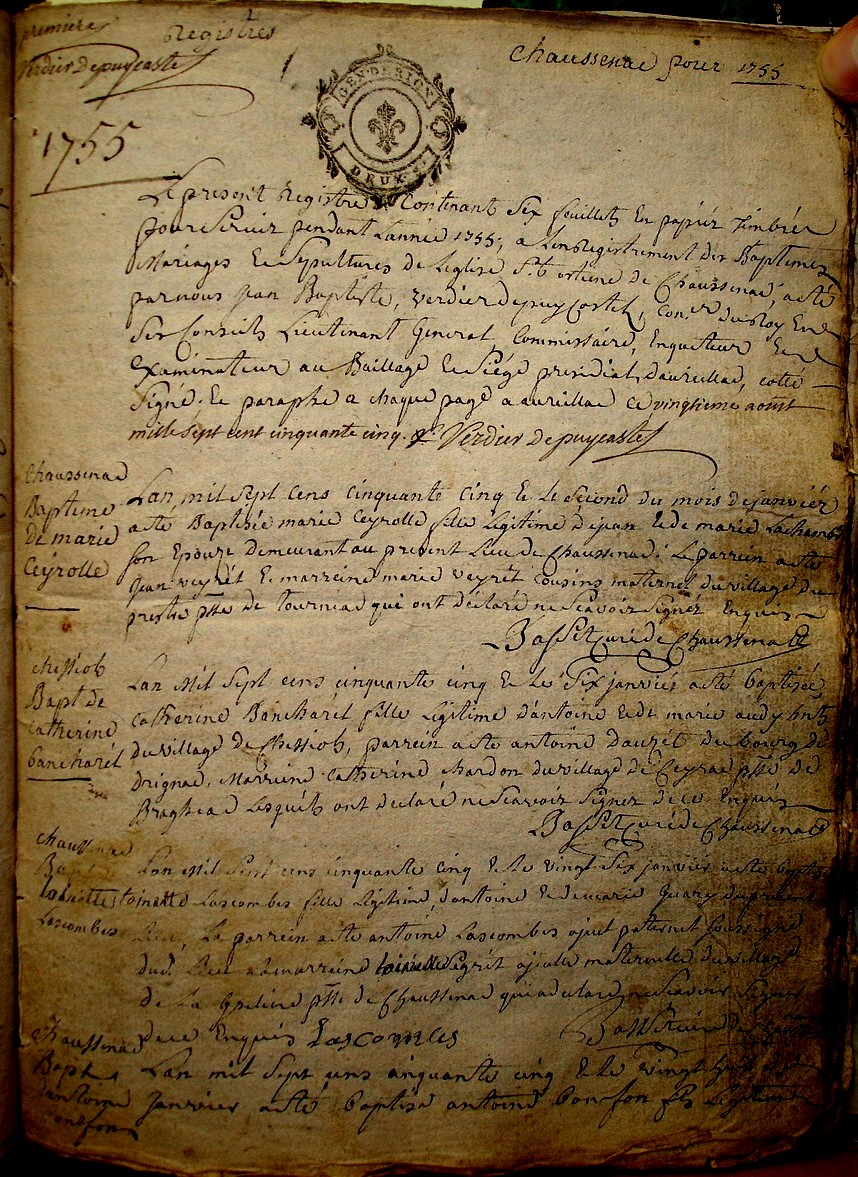 premiere Registres
Verdier depuycastel
Chaussenac pour 1755
GEN. DE RION
DEUX S.
1755
Le present Registre Contenant Six feuillets En papier Timbrée
pour Servir pendant Lannée 1755, a Lenregistrement des Baptemes
Mariages Et Sepultures de Leglise St de Chaussenac, acté
par nous Jean Baptiste, Verdier depuy Costel, Coner du Roy En
Ses Conseils Lieutenant General, Commissaire, Enqueteur Et
Examinateur au Baillage Et Siége presidial daurillac, cotté
Signé, Et paraphé a chaque page a aurillac ce vingtieme aoust
mille Sept cent cinquante cinq. Verdier depuycastel
Chaussenac
Bapteme
de marie
Ceyrolle
Lan mil Sept Cens Cinquante Cinq Et Le Second du mois de janvier
a eté Baptisée marie Ceyrolle fille Légitime de jean Et de marie
Son Epouze Demeurant au present Lieu de Chaussenac: Le parrein a eté
jean veyrét Et marreine marie veyrét cousins maternel du village de
psse de tourniac qui ont déclaré ne Scavoir Signer Enquis
Basset curé de Chaussenac
chessiob
Bapt de
catherine
bancharél
Lan Mil Sept cens cinquante cinq Et le Six janvier a eté baptisée
catherine Bancharél fille Légitime d'antoine Et de marie
du village de Chessiob, parrein a eté antoine dauzét du bourg de
Drignac, Marreine catherine chardon du village de Ceyrac psse de
Brageac Lesquels ont declaré ne Scavoir Signer de ce Enquis
Basset curé de Chaussenac
chaussenac
Bapt
toinette
Lascombes
Lan Mil Sept cens cinquante cinq Et le vingt Six janvier a eté
toinette Lascombes fille Légitime, d'antoine Et de marie du present
Lieu, Le parrein a eté antoine Lascombes ajeul paternel Soussigné
dud. Lieu Et La marreine toinette Segrét ajeulle maternelle du village
de La psse de Chaussenac qui a declaré ne Scavoir Signer
de ce Enquis Lascombes Basset curé de
Chaussenac
Bapt
dantoine
bonsfon
Lan mil Sept cens cinquante cinq Et le vingt
janvier a eté baptisé antoine bonsfon fils Légitime